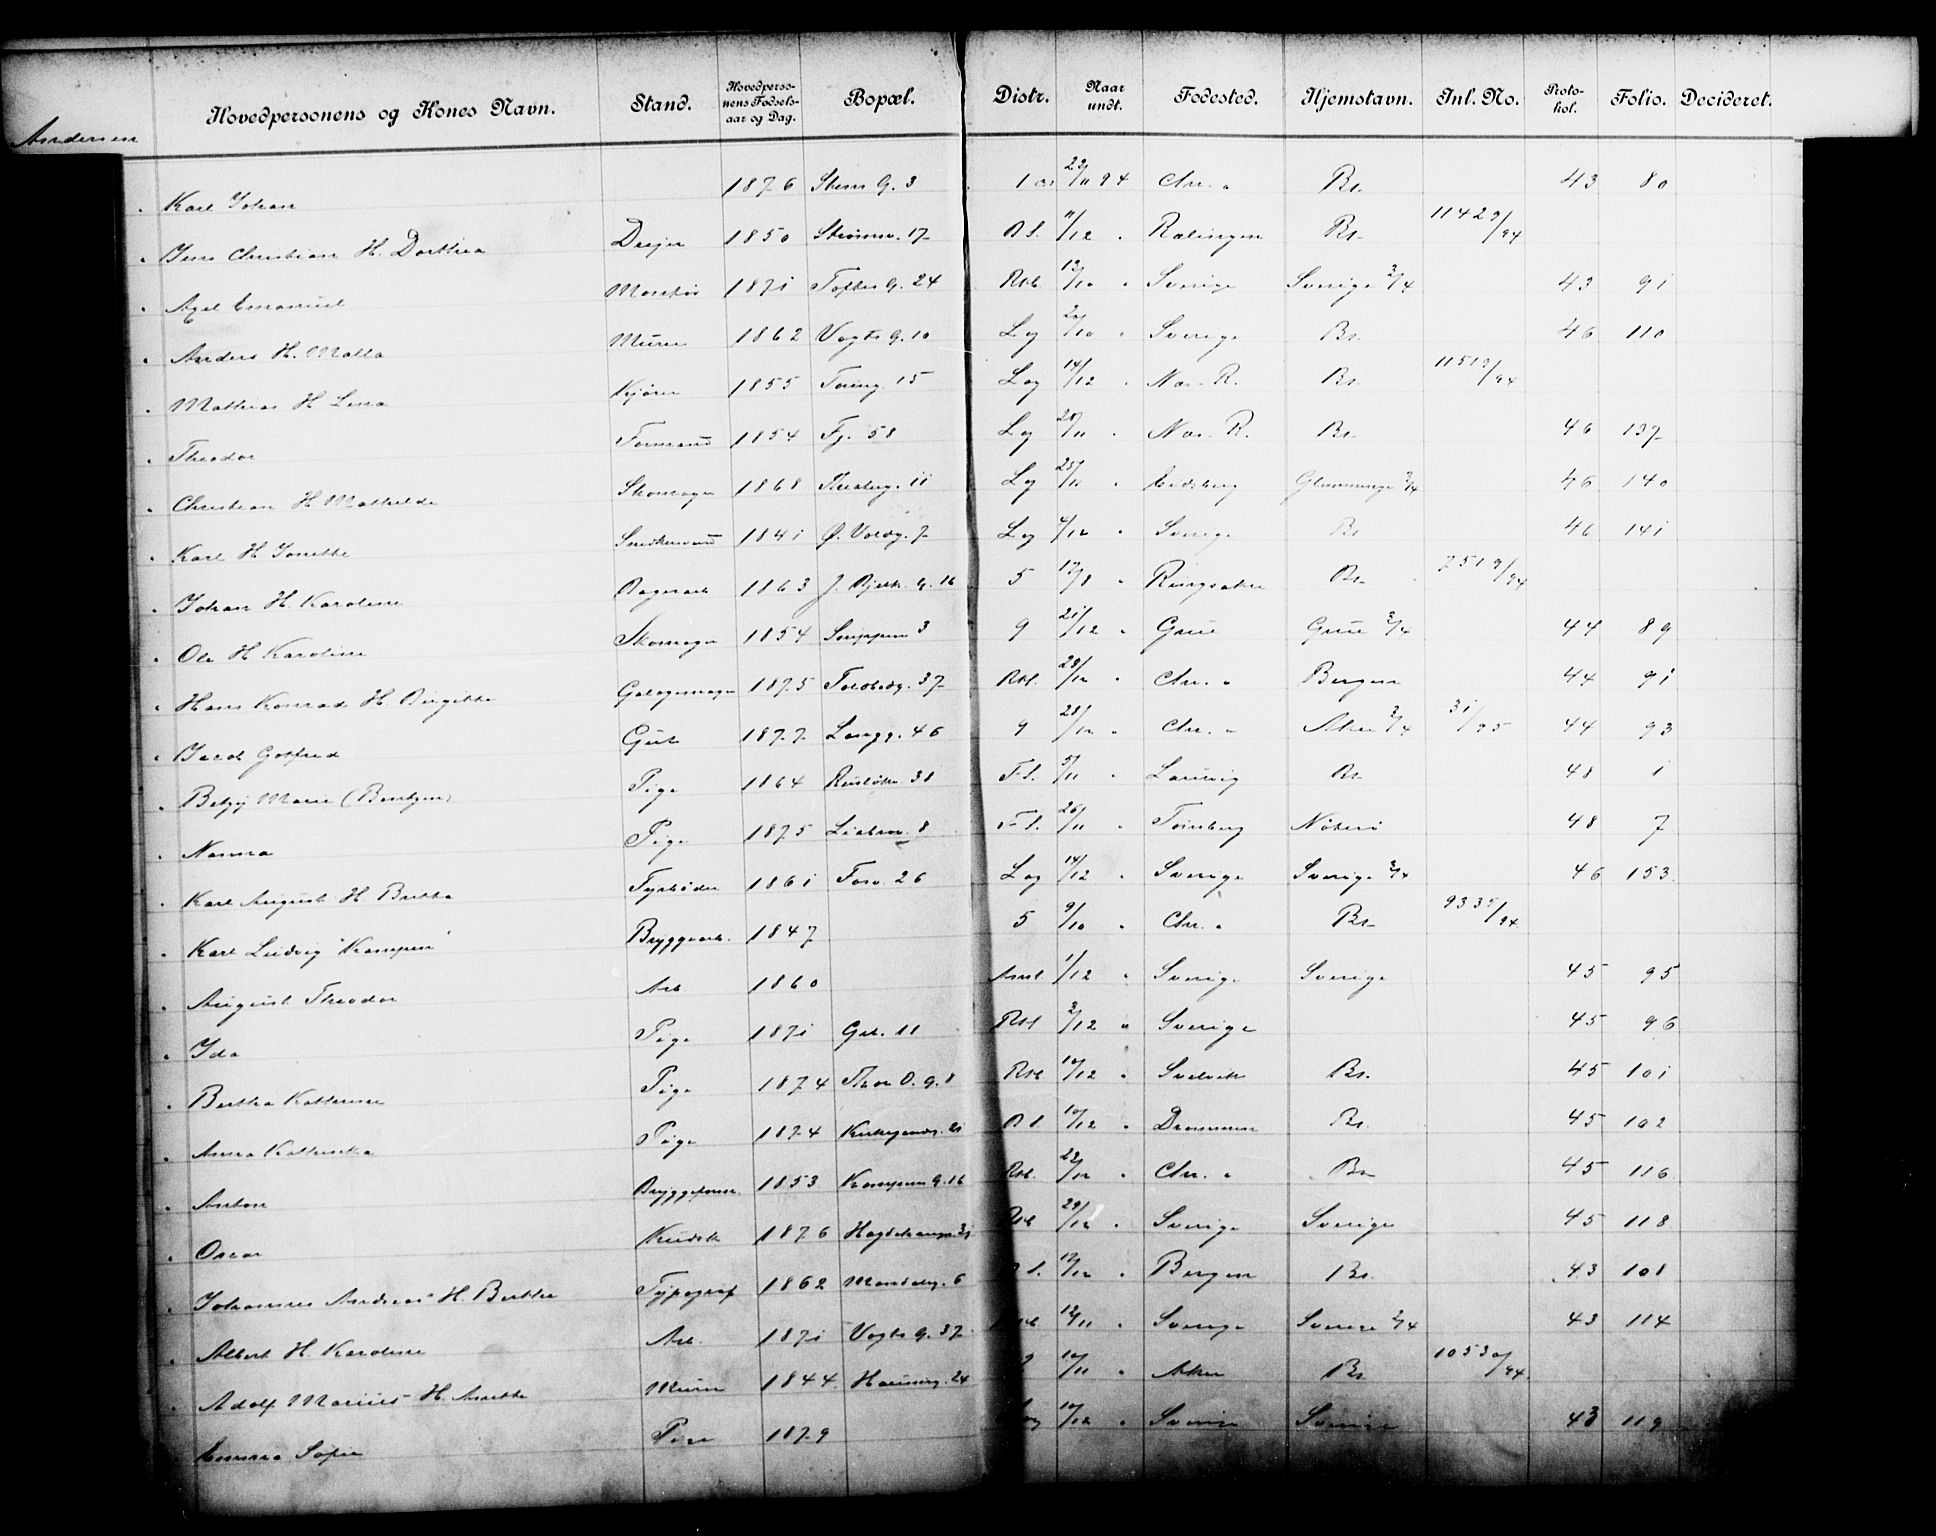 Andersen
Hovedpersonens og Kones Navn. Stand. Hovedpersonens Fødselsaar og Dag. Bopæl. Distr. Naar undt. Fødested. Hjemstavn. Inl. No. Protokol. Folio. Decideret.
" Karl Johan 1876 Stens G. 3 22/11 94 Chr. " Bs. 43 80
" Jens Christian H. Dorthea Drejer 1850 Strømsv. 17 11/12 " Rælingen Bs. 11429/94
" Axel Emanuel Montør 1871 Toftes G. 24 12/10 " Sverige Sverige 2/4 43 91
" Anders H. Malla Murer 1862 Vogts G. 10 Log /10 " Sverige Bs. 46 110
" Mathias H. Lena Kjører 1855 15 Log 14/12 " Næs R. Bs. 11510/94
" Theodor Formand 1854 Fj. 58 Log /11 " Næs R. Bs. 46 137
" Christian H. Mathilde Skomager 1868 11 Log " Eidsberg Glemminge 2/4 46 140
" Karl H. Jonette 1841 Ø. Voldg. 7 Log 4/12 " Sverige Bs. 46 141
" Johan H. Karoline Bagerarb 1863 J. Bjelk. G. 16 5 17/8 " Ringsaker Bs. 7519/94
" Ole H. Karoline Skomager 1854 Snippen 3 9 21/12 " Grue Grue 2/4 44 89
" Hans Konrad H. Birgitte Galogemager 1875 Toldbodg. 37 " Chr. " Bergen 44 91
" Gotfred Gut 1877 Langg. 46 9 28/12 " Chr. " Aker 2/4 31/95 44 93
" Betzy Marie (Bentzen) Pige 1864 Ruseløkv. 38 F. S. 5/11 Laurvig Bs. 48 1
" Nanna Pige 1875 8 F. S. 26/11 " Tønsberg Nøterø 48 7
" Karl August H. Britta Fyrbøder 1861 Fosv. 26 Log 14/12 " Sverige Sverige 2/4 46 153
" Karl Ludvig "Kampen" Bryggearb. 1847 5 9/10 " Chr. " Bs. 9335/94
" August Theodor Arb 1860 1/12 " Sverige Sverige 45 95
" Ida Pige 1871 Gbt. 11 Rst 3/12 " Sverige 45 96
" Bertha Kathrine Pige 1874 Thor O. G. 8 10/12 " Svelvik Bs. 45 101
" Anna Kathinka Pige 1874 Kirkegaards. 21 10/12 " Drammen Bs. 45 102
" Anton 1853 Kampen G. 16 22/12 " Chr. " Bs. 45 116
" Oscar Kudsk 1876 29/12 " Sverige Sverige 45 118
" Johannes Andreas H. Berthe Typograf 1862 Mandalsg. 6 12/12 " Bergen Bs. 43 108
" Albert H. Karoline Arb. 1871 Vogts G. 37 12/11 " Sverige Sverige 2/4 43 114
" Adolf Marius H. Anette Murer 1844 Hausmg. 24 10/11 " Aker Bs. 10530/94
Emma Sofie Pige 1879 10/12 " Sverige Sverige 43 119